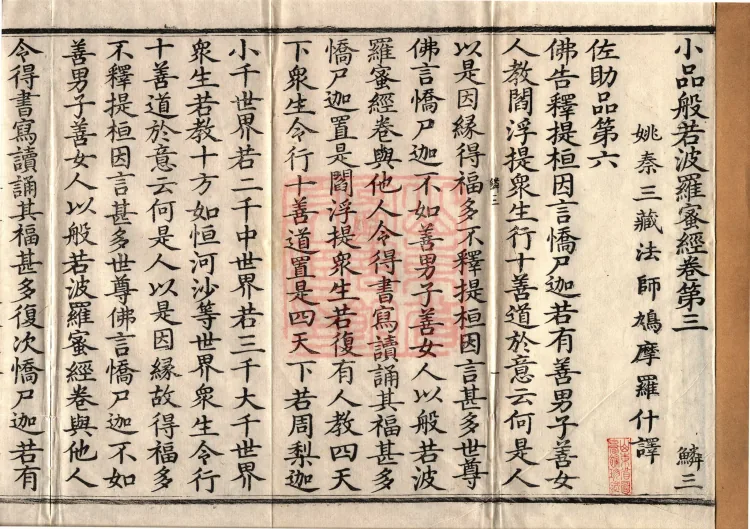 小品般若波羅蜜經卷第三 鱗三
姚秦三藏法師鳩摩羅什譯
佐助品第六
佛告釋提桓因言憍尸迦若有善男子善女
人教閻浮提衆生行十善道於意云何是人
以是因緣得福多不釋提桓因言甚多世尊
鱗三
佛言憍尸迦不如善男子善女人以般若波
羅蜜經卷與他人令得書寫讀誦其福甚多
憍尸迦置是閻浮提衆生若復有人教四天
下衆生令行十善道置是四天下若周梨迦
小千世界若二千中世界若三千大千世界
衆生若教十方如恒河沙等世界衆生令行
十善道於意云何是人以是因緣故得福多
不釋提桓因言甚多世尊佛言憍尸迦不如
善男子善女人以般若波羅蜜經卷與他人
令得書寫讀誦其福甚多復次憍尸迦若有